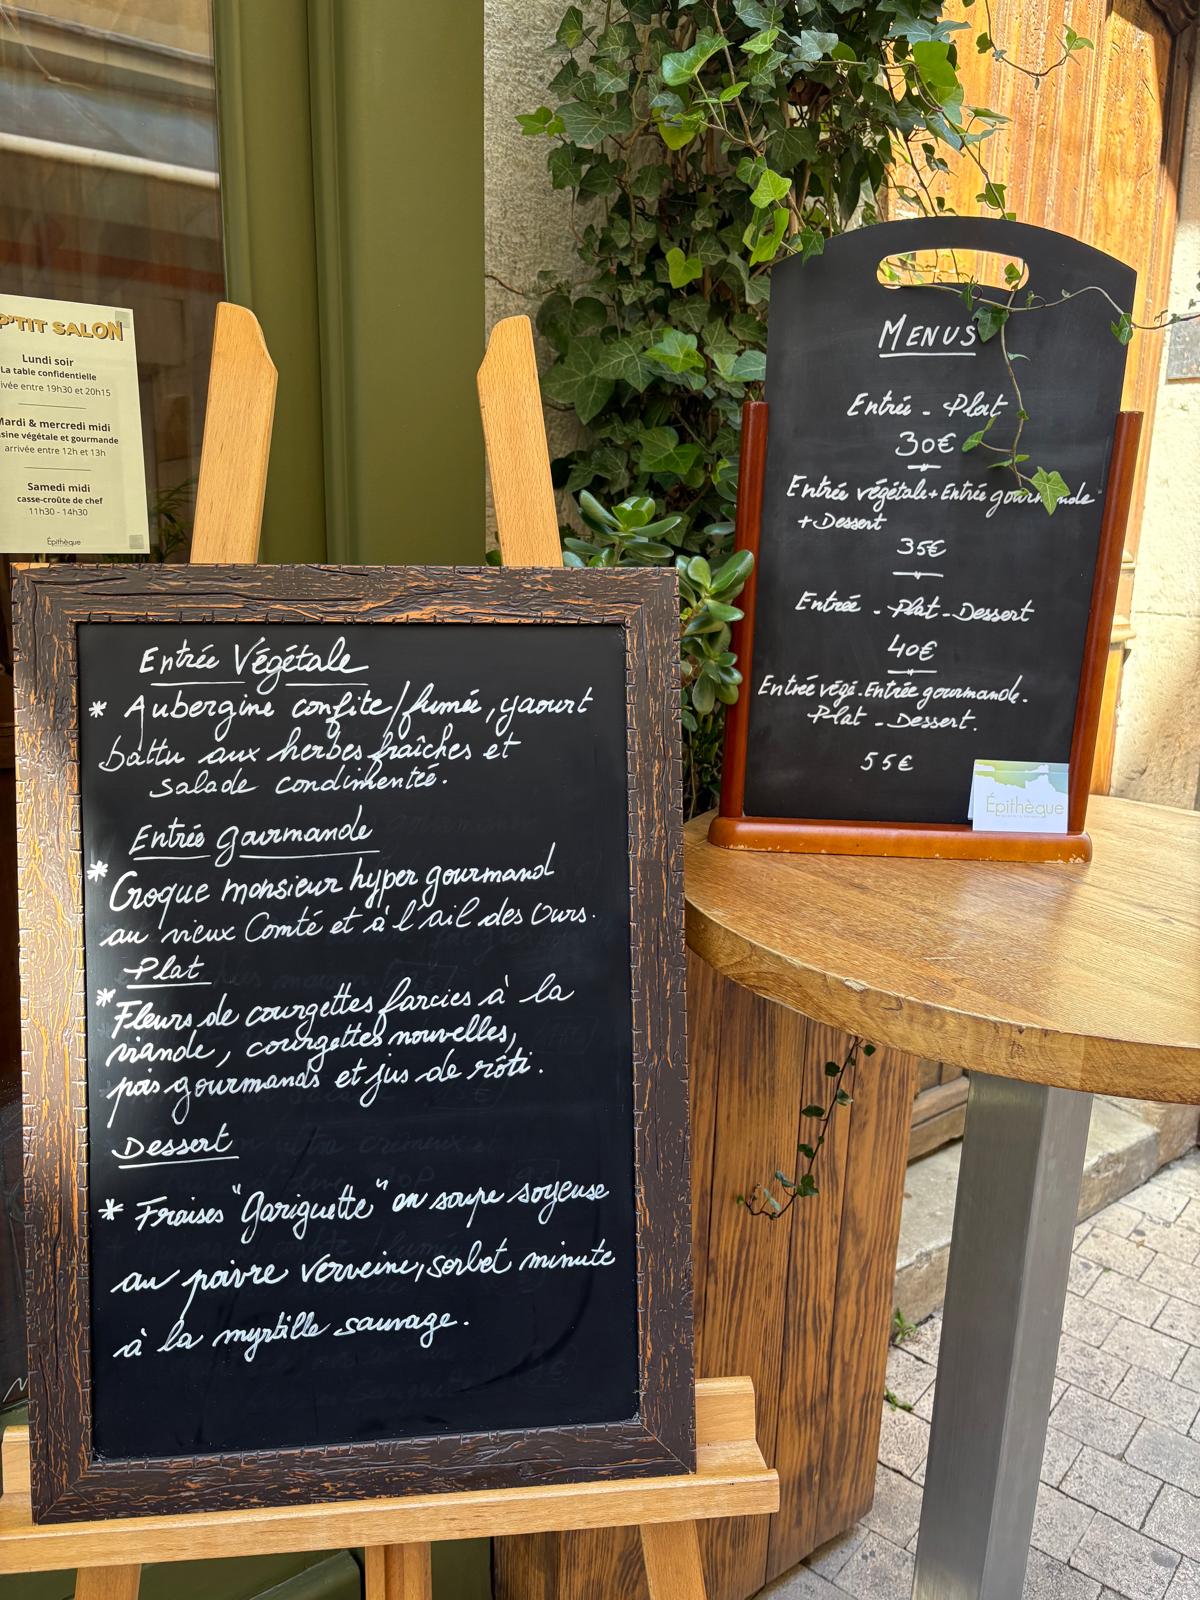 P'TIT SALON
Lundi soir
La table confidentielle
ivée entre 19h30 et 20h15
Mardi & mercredi midi
sine végétale et gourmande
arrivée entre 12h et 13h
Samedi midi
casse-croûte de chef
11h30 - 14h30
Épithèque
Entrée Végétale
* Aubergine confite/fumée, yaourt
battu aux herbes fraîches et
salade condimentée.
Entrée gourmande
* Croque monsieur hyper gourmand
au vieux Comté et à l'ail des Ours.
Plat
* Fleurs de courgettes farcies à la
viande, courgettes nouvelles,
pois gourmands et jus de rôti.
Dessert
* Fraises "Gariguette" en soupe soyeuse
au poivre verveine, sorbet minute
à la myrtille sauvage.
MENUS
Entrée - Plat
30€
Entrée végétale + Entrée gourmande
+ Dessert
35€
Entrée - Plat - Dessert
40€
Entrée végé. Entrée gourmande.
Plat - Dessert.
55€
Épithèque